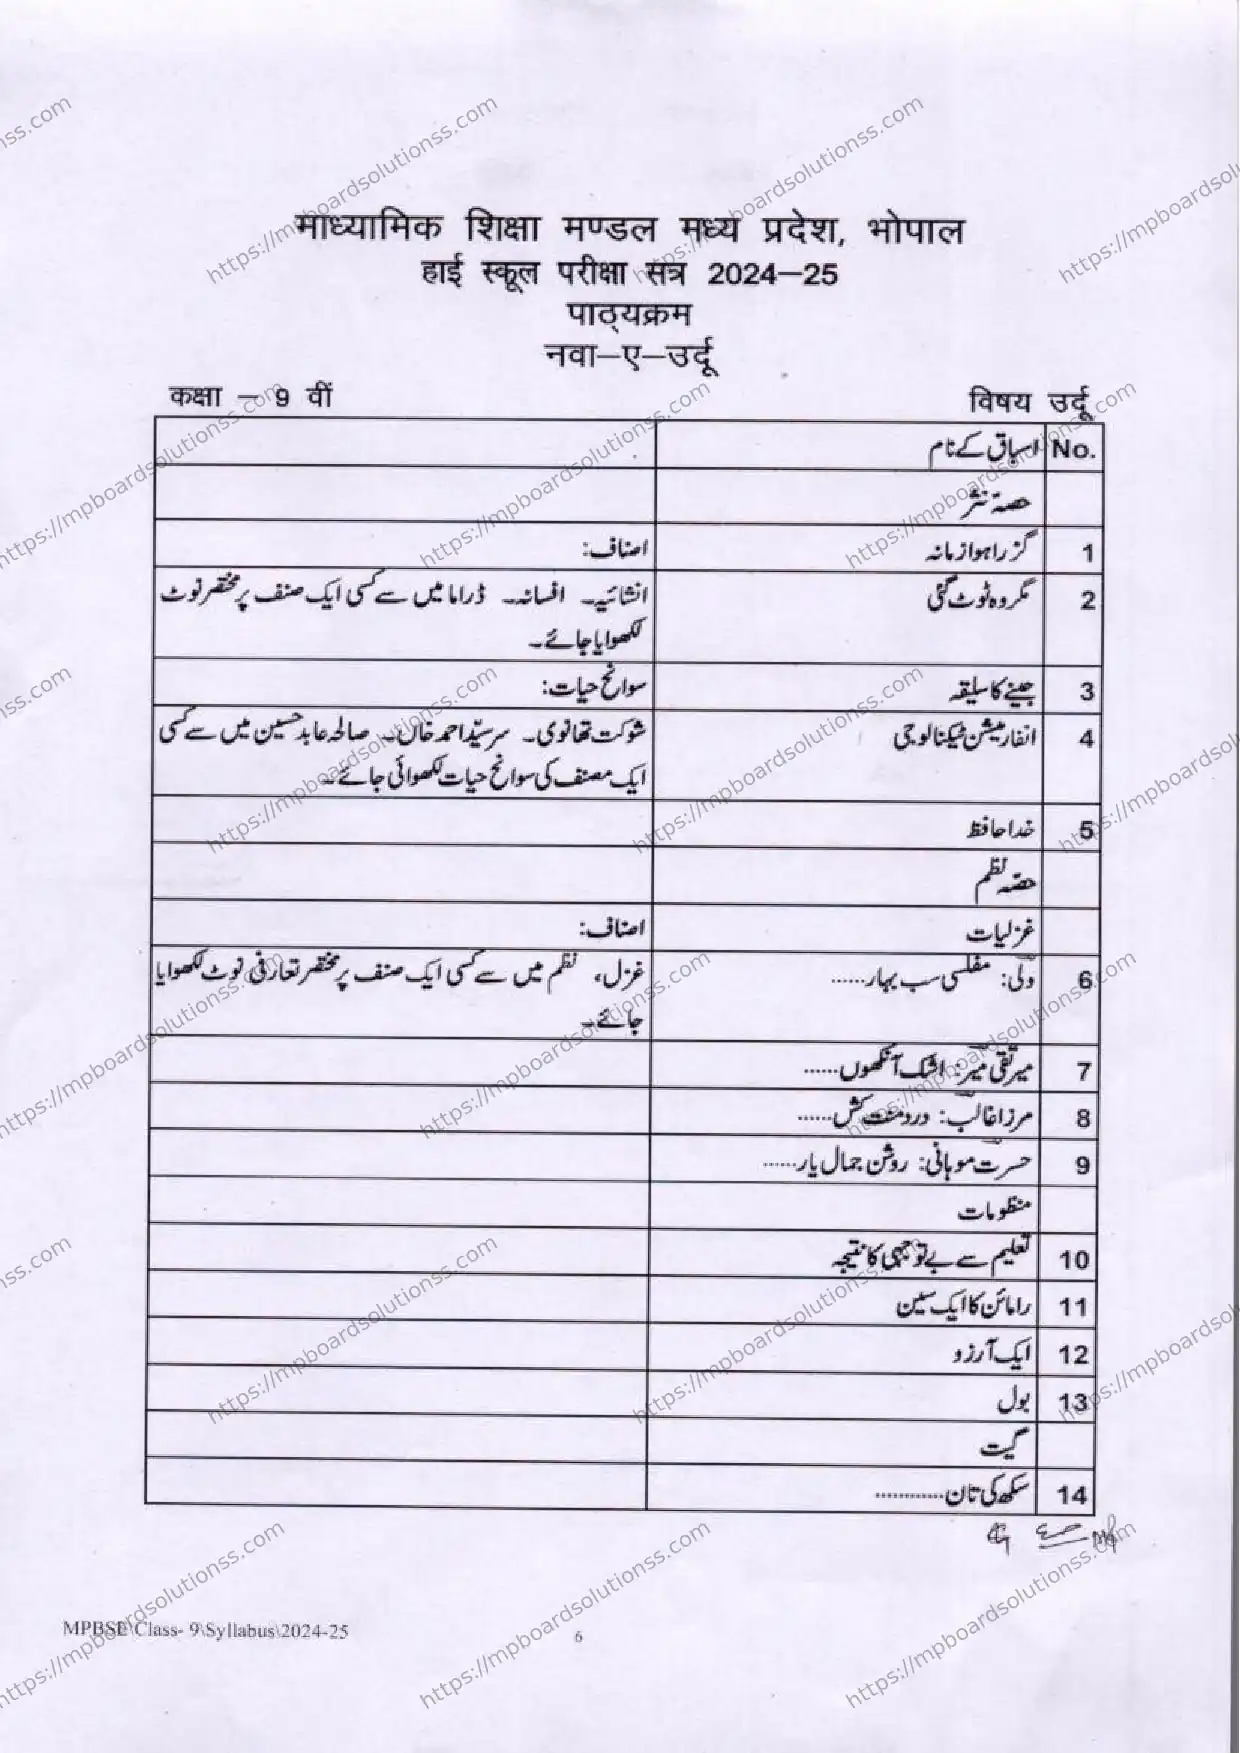 माध्यामिक शिक्षा मण्डल मध्य प्रदेश, भोपाल
हाई स्कूल परीक्षा सत्र 2024–25
पाठ्यक्रम
नवा–ए–उर्दू
कक्षा – 9 वीं विषय उर्दू
No. اسباق کے نام
حصۂ نثر
1 گزرا ہوا زمانہ اصناف:
2 مگر وہ ٹوٹ گئی انشائیہ۔ افسانہ۔ ڈراما میں سے کسی ایک صنف پر مختصر نوٹ
لکھوایا جائے۔
3 جینے کا سلیقہ سوانح حیات:
4 انفارمیشن ٹیکنالوجی شوکت تھانوی۔ سرسیّد احمد خاں۔ صالحہ عابد حسین میں سے کسی
ایک مصنف کی سوانح حیات لکھوائی جائے۔
5 خدا حافظ
حصّہ نظم
غزلیات اصناف:
6 ولی: مفلسی سب بہار...... غزل، نظم میں سے کسی ایک صنف پر مختصر تعارفی نوٹ لکھوایا
جائے۔
7 میر تقی میر: اشک آنکھوں......
8 مرزا غالب: درد منت کش......
9 حسرت موہانی: روشن جمال یار......
منظومات
10 تعلیم سے بے توجہی کا نتیجہ
11 رامائن کا ایک سین
12 ایک آرزو
13 بول
گیت
14 سکھ کی تان............
MPBSE\Class- 9\Syllabus\2024-25
6
https://mpboardsolutionss.com